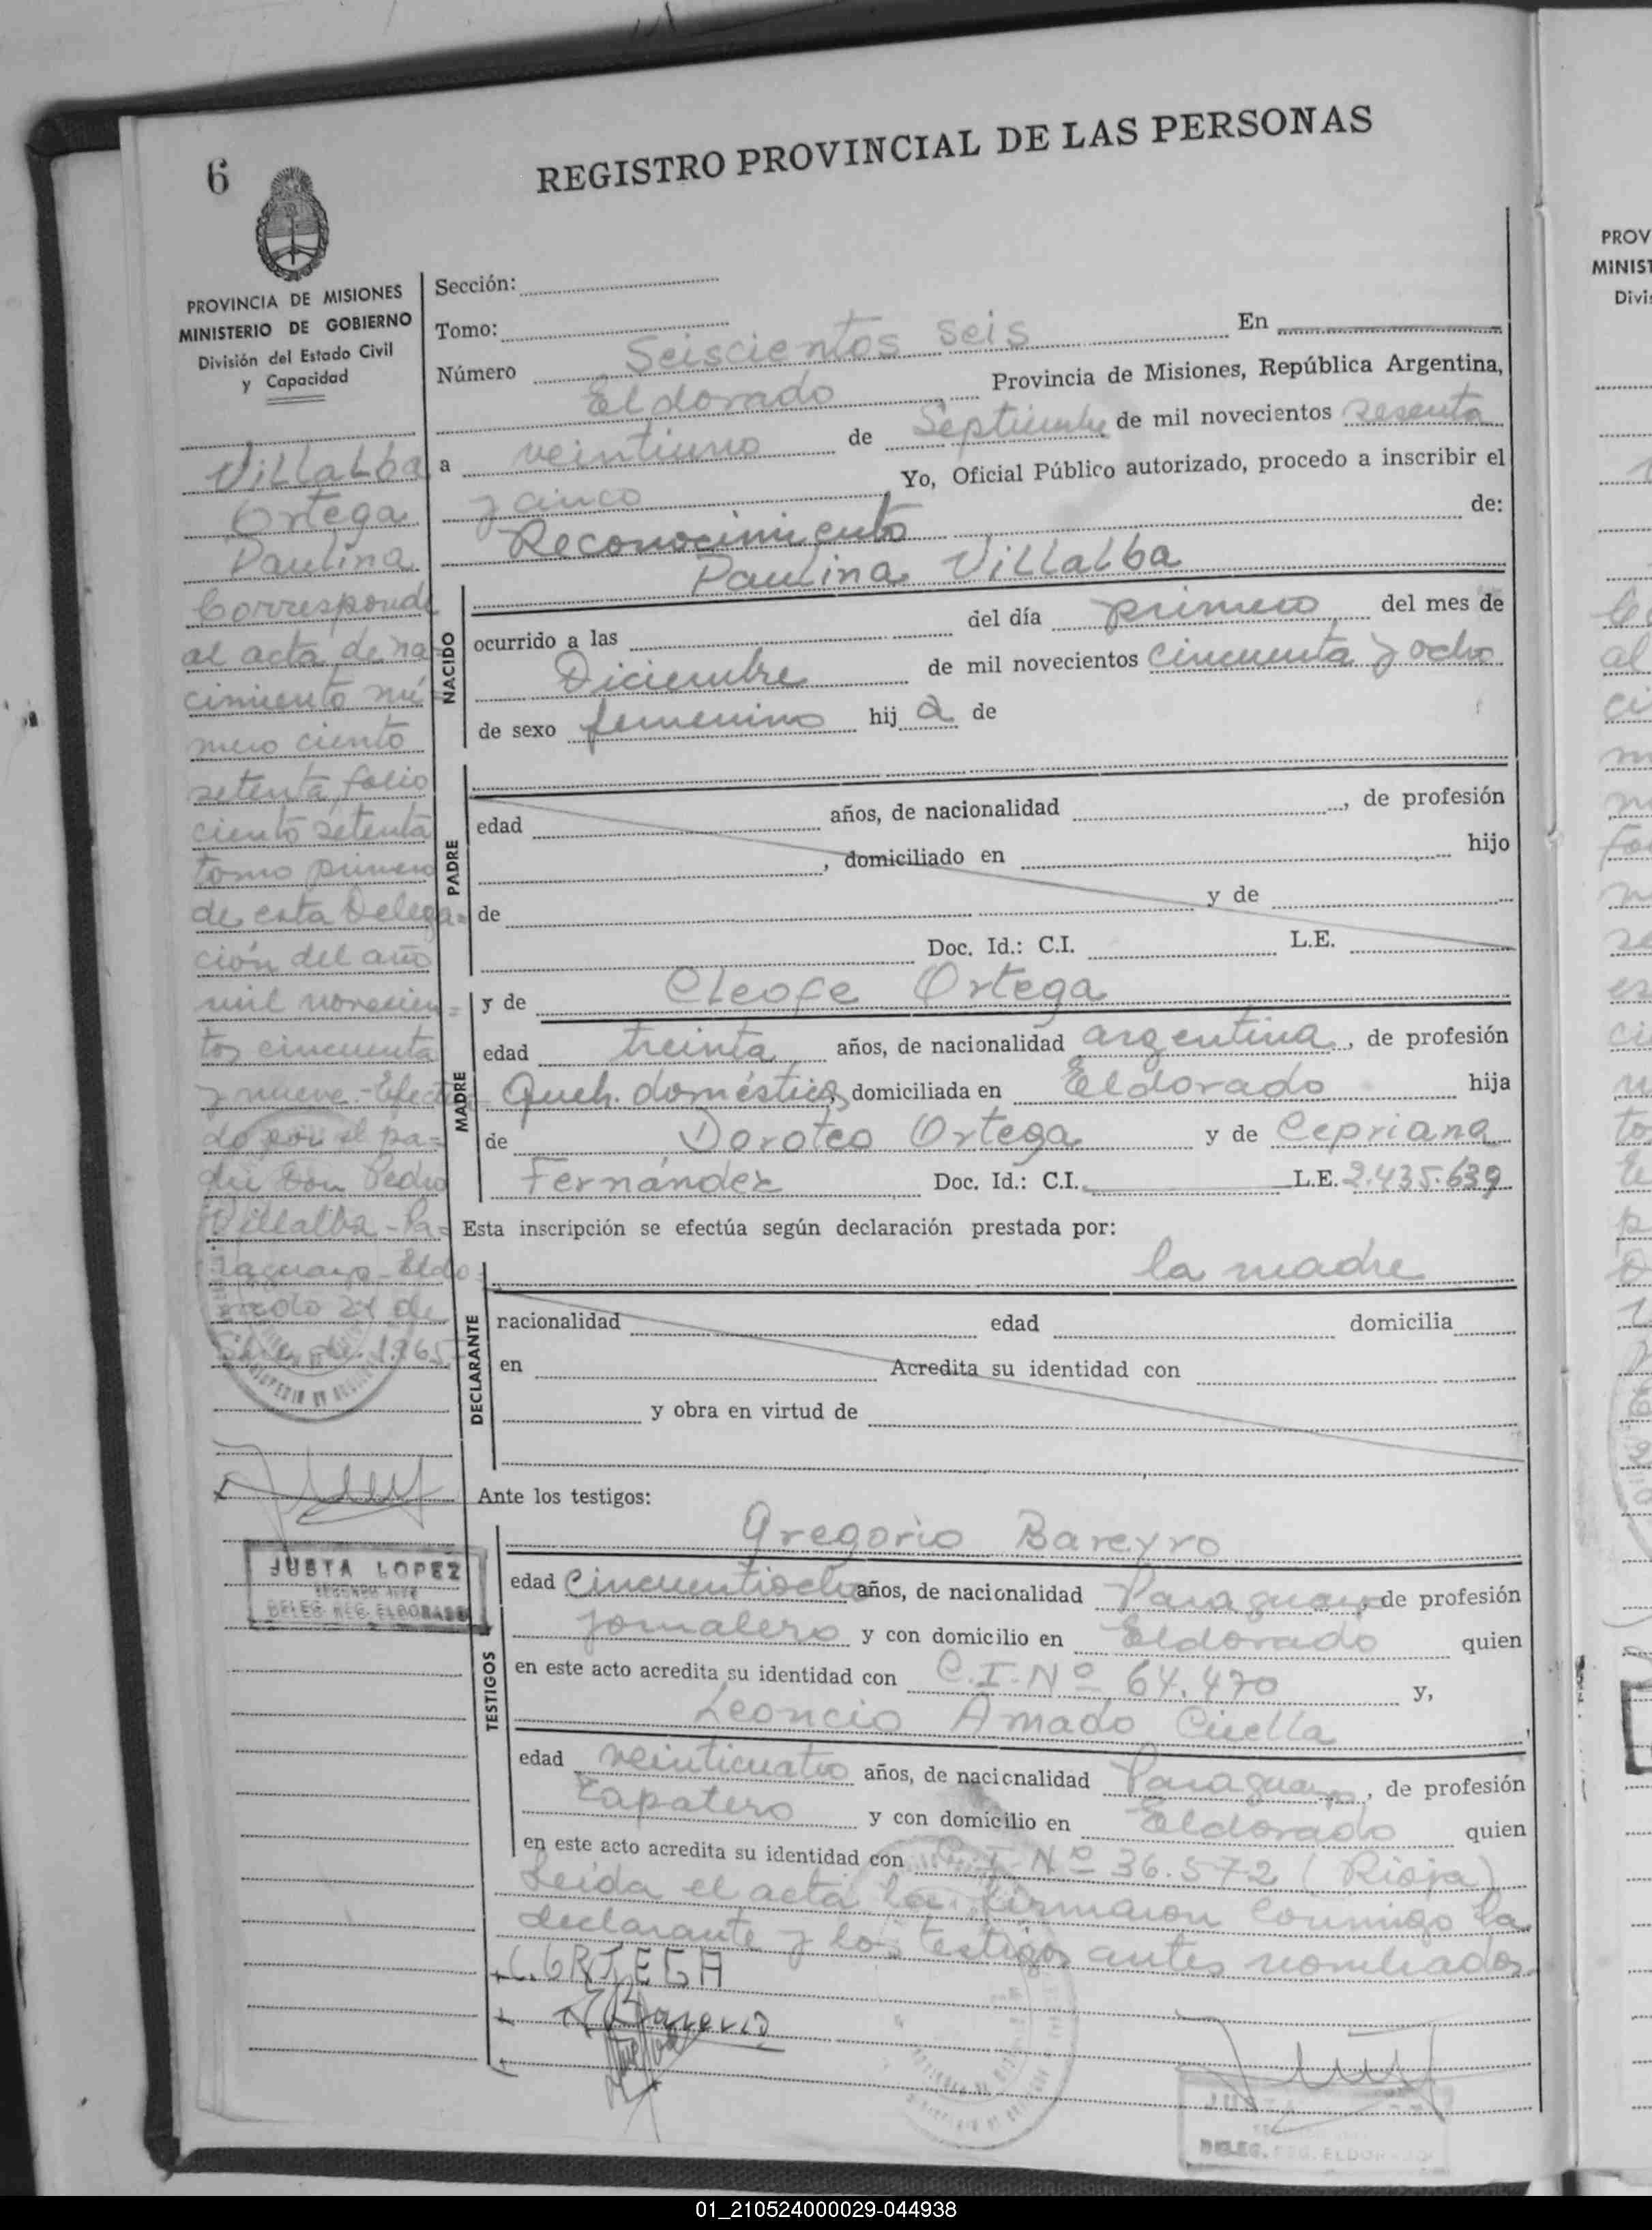 REGISTRO PROVINCIAL DE LAS PERSONAS
6
PROVINCIA DE MISIONES
MINISTERIO DE GOBIERNO
División del Estado Civil
y Capacidad
Villalba
Ortega
Paulina
Corresponde
al acta de na
cimiento nú
mero ciento
setenta, folio
ciento setenta
tomo primero
de esta Delega=
ción del año
mil novecien=
tos cincuenta
y nueve.-Efectua
do por el pa=
dre Don Pedro
Villalba - Pa=
raguayo - Eldo
rado 21 de
1965
JUSTA LOPEZ
DELEG. REG. ELDORADO
Sección:
Tomo:
Número Seiscientos seis En
Eldorado Provincia de Misiones, República Argentina,
a veintiuno de Septiembre de mil novecientos sesenta
y cinco Yo, Oficial Público autorizado, procedo a inscribir el
Reconocimiento de:
Paulina Villalba
NACIDO
ocurrido a las del día primero del mes de
Diciembre de mil novecientos cincuenta y ocho
de sexo femenino hij a de
PADRE
edad años, de nacionalidad , de profesión
, domiciliado en hijo
de y de
Doc. Id.: C.I. L.E.
MADRE
y de Cleofe Ortega
edad treinta años, de nacionalidad argentina, de profesión
Queh. domésticos, domiciliada en Eldorado hija
de Doroteo Ortega y de Cepriana
Fernández Doc. Id.: C.I. L.E. 2.435.639
Esta inscripción se efectúa según declaración prestada por:
la madre
DECLARANTE
nacionalidad edad domicilia
en Acredita su identidad con
y obra en virtud de
Ante los testigos:
TESTIGOS
Gregorio Bareyro
edad Cincuentiocho años, de nacionalidad Paraguayo, de profesión
jornalero y con domicilio en Eldorado quien
en este acto acredita su identidad con C.I. Nº 64.470 y,
Leoncio Amado Cuella
edad veinticuatro años, de nacionalidad Paraguayo, de profesión
Zapatero y con domicilio en Eldorado quien
en este acto acredita su identidad con C.I. Nº 36.572 (Rioja)
Leida el acta la firmaron conmigo la
declarante y los testigos antes nombrados
C. ORTEGA
JUSTA
DELEG. REG. ELDORADO
PROV
MINIST
Divi
01_210524000029-044938